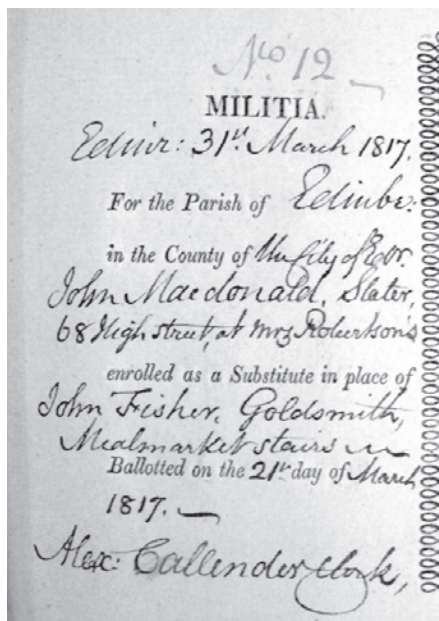 No. 12
MILITIA.
Edinr: 31st. March 1817.
For the Parish of Edinbr:
in the County of the City of Edr.
John Macdonald, Slater,
68 High street, at Mrs Robertson's
enrolled as a Substitute in place of
John Fisher, Goldsmith,
Mealmarket stairs
Ballotted on the 21st day of March
1817.
Alex: Callender Clerk,